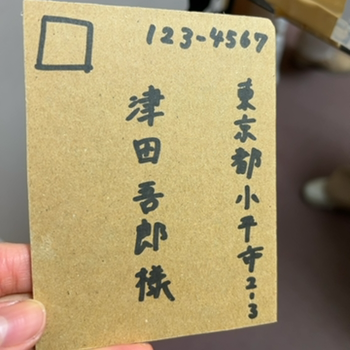 123-4567
東京都小平市2-3
津田吾郎様